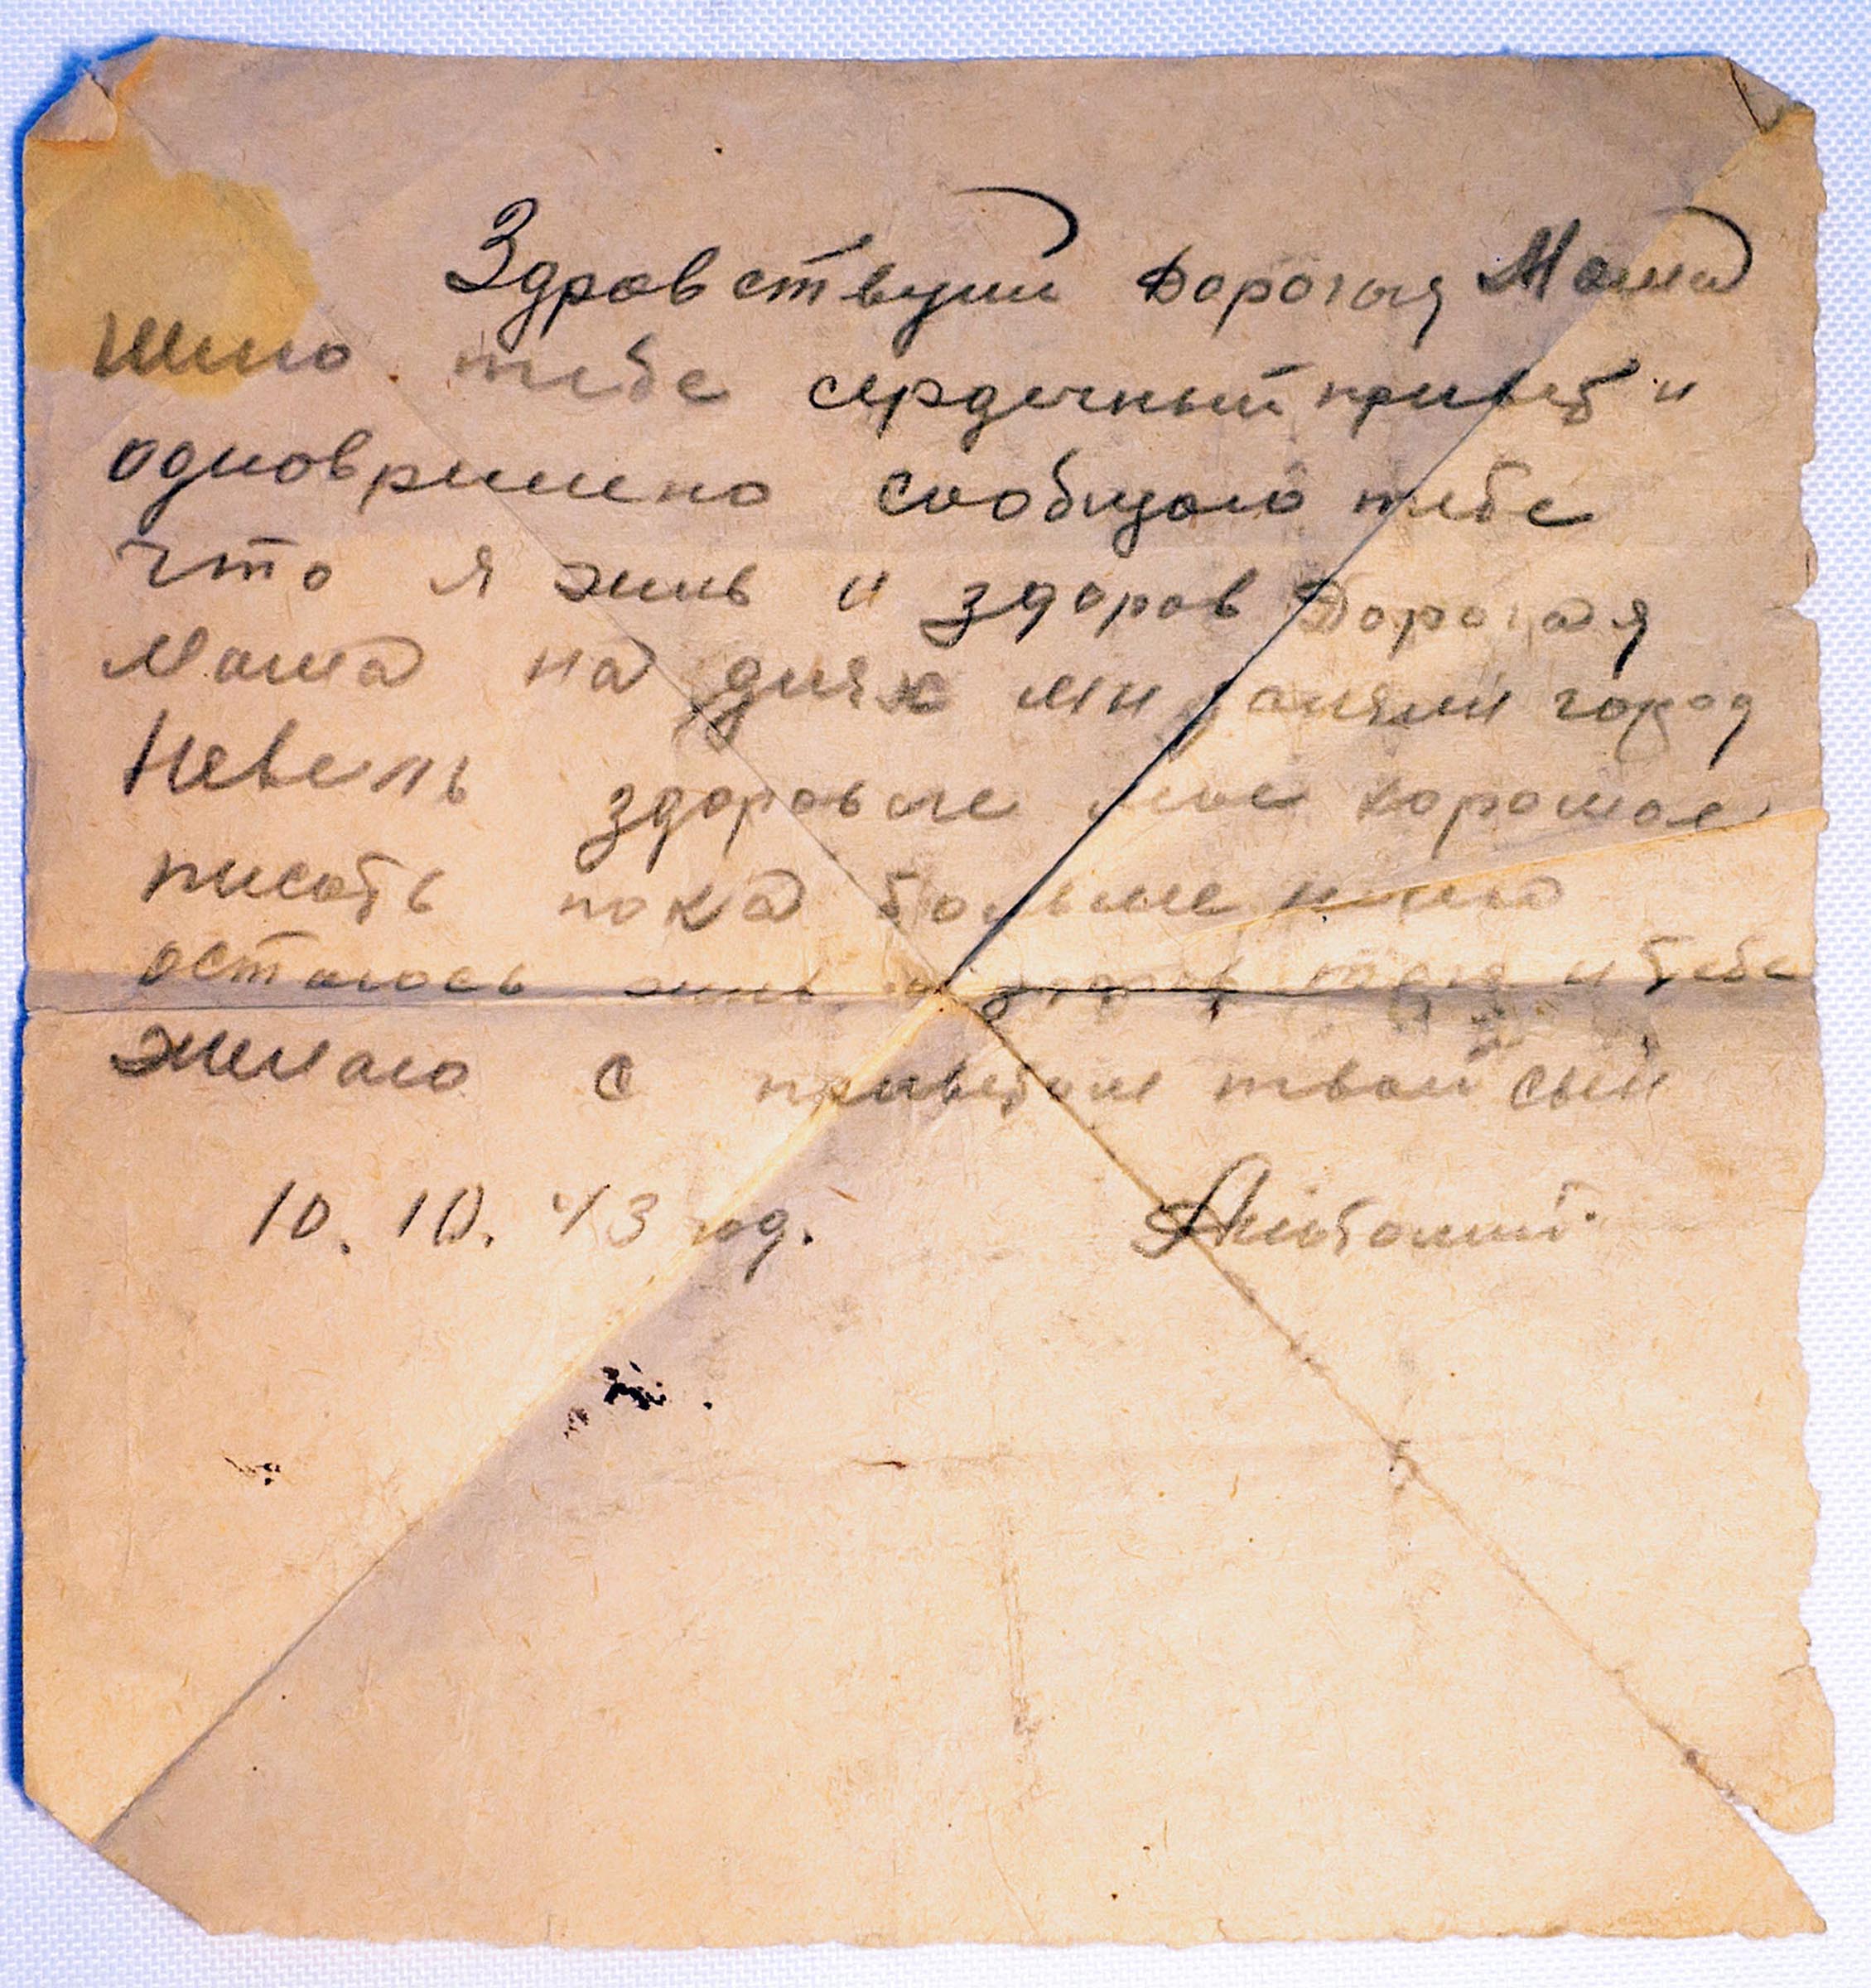 Здравствуй Дорогая Мама
Шлю тебе сердечный привет и
одновремено сообщаю тебе
что я жив и здоров Дорогая
Мама на днях мы заняли город
Невель здоровье мое хорошое
писать пока больше нечего
остаюсь жив и здоров того и тебе
желаю с приветом твой сын
10.10.43 год. Анатолий.